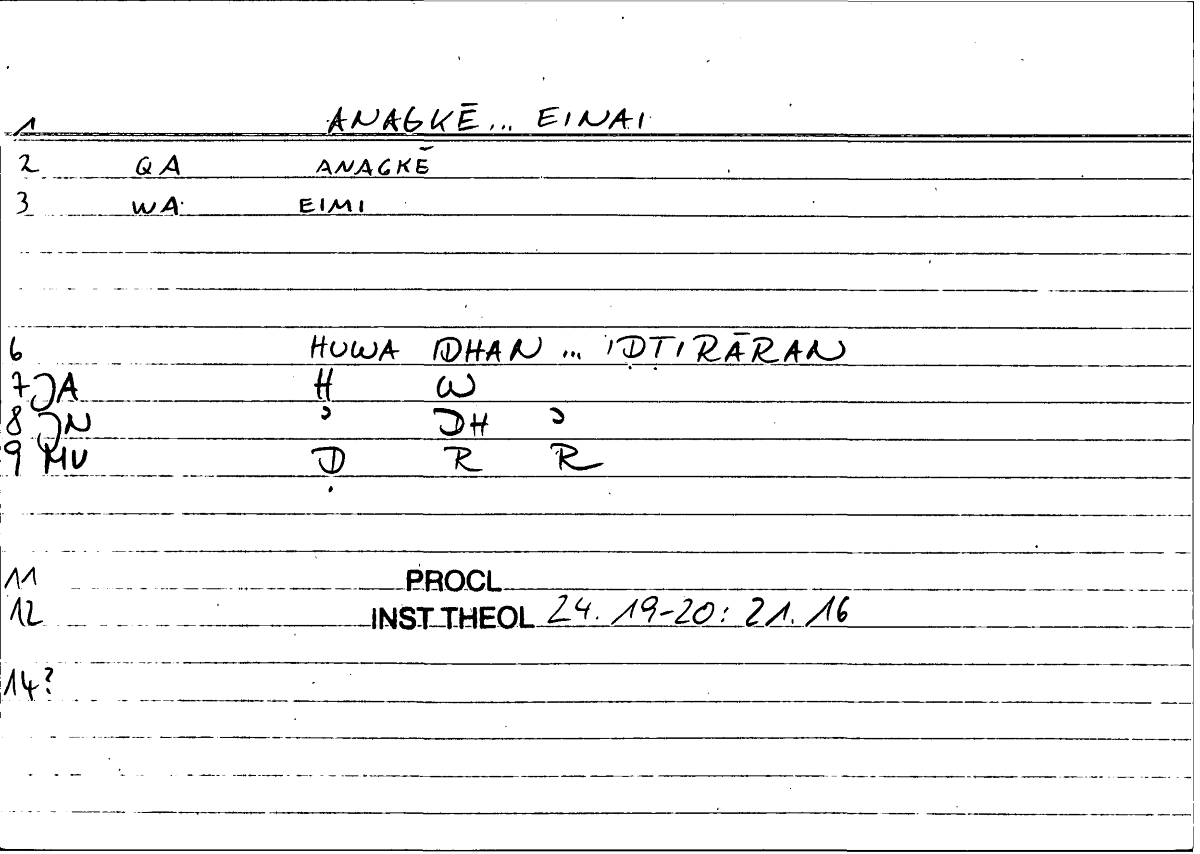 1 ANAGKĒ... EINAI
2 QA ANAGKĒ
3 WA EIMI
6 HUWA IDHAN ... IḌṬIRĀRAN
7 JA H W
8 JN ʾ DH ʾ
9 MU Ḍ R R
11 PROCL
12 INST THEOL 24. 19-20: 21. 16
14?